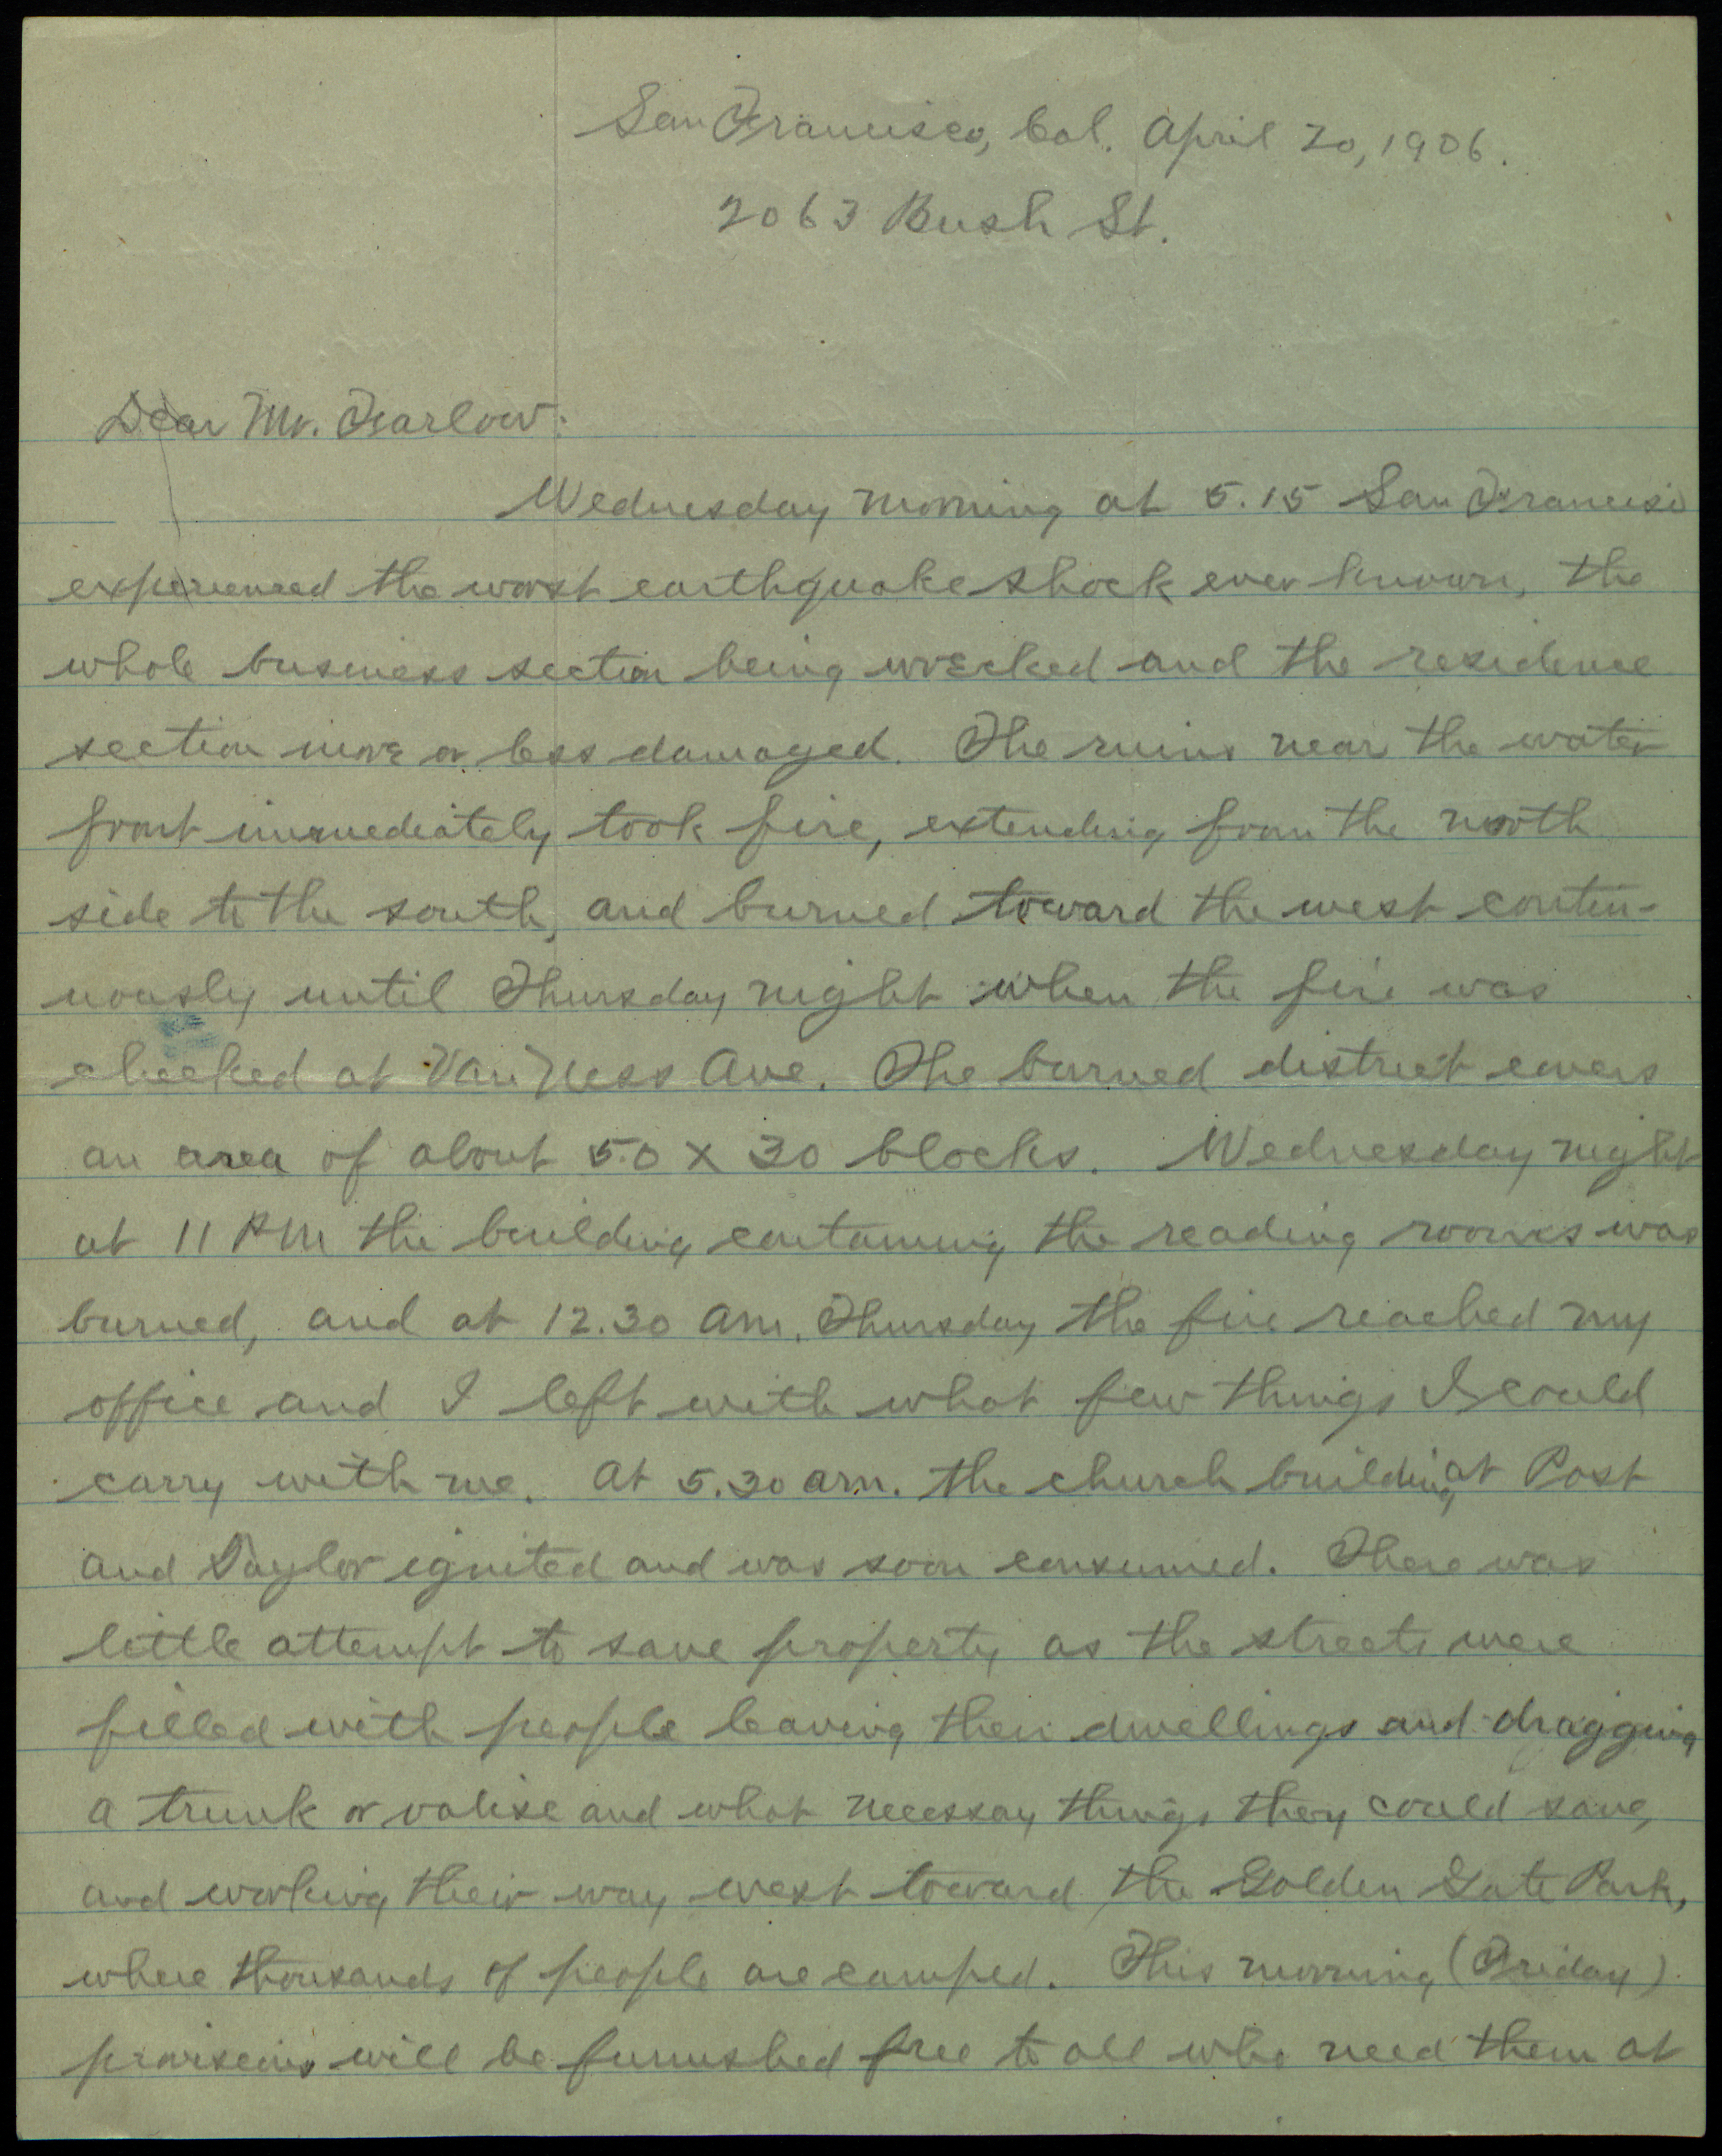 San Francisco, Cal. April 20, 1906.
2063 Bush St.
Dear Mr. Farlow:
Wednesday morning at 5.15 San Francisco
experienced the worst earthquake shock ever known, the
whole business section being wrecked and the residence
section more or less damaged. The ruins near the water
front immediately took fire, extending from the north
side to the south, and burned toward the west contin-
uously until Thursday night when the fire was
checked at Van Ness Ave. The burned district covers
an area of about 50 x 30 blocks. Wednesday night
at 11 PM the building containing the reading rooms was
burned, and at 12.30 am. Thursday the fire reached my
office and I left with what few things I could
carry with me. At 5.30 am. the church building at Post
and Taylor ignited and was soon consumed. There was
little attempt to save property as the streets were
filled with people leaving their dwellings and dragging
a trunk or valise and what necessay things they could save,
and working their way west toward the Golden Gate Park,
where thousands of people are camped. This morning (Friday)
provisions will be furnished free to all who need them at